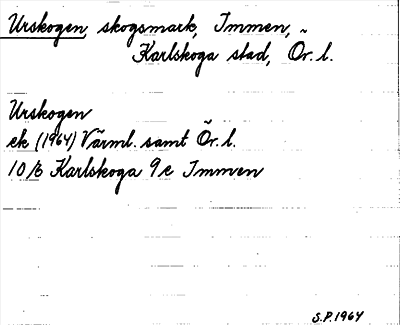 Urskogen, skogsmark, Immen,
Karlskoga stad, Ör. l.
Urskogen
ek (1964) Värml. samt Ör. l.
10/6 Karlskoga 9e Immen
S.P. 1964